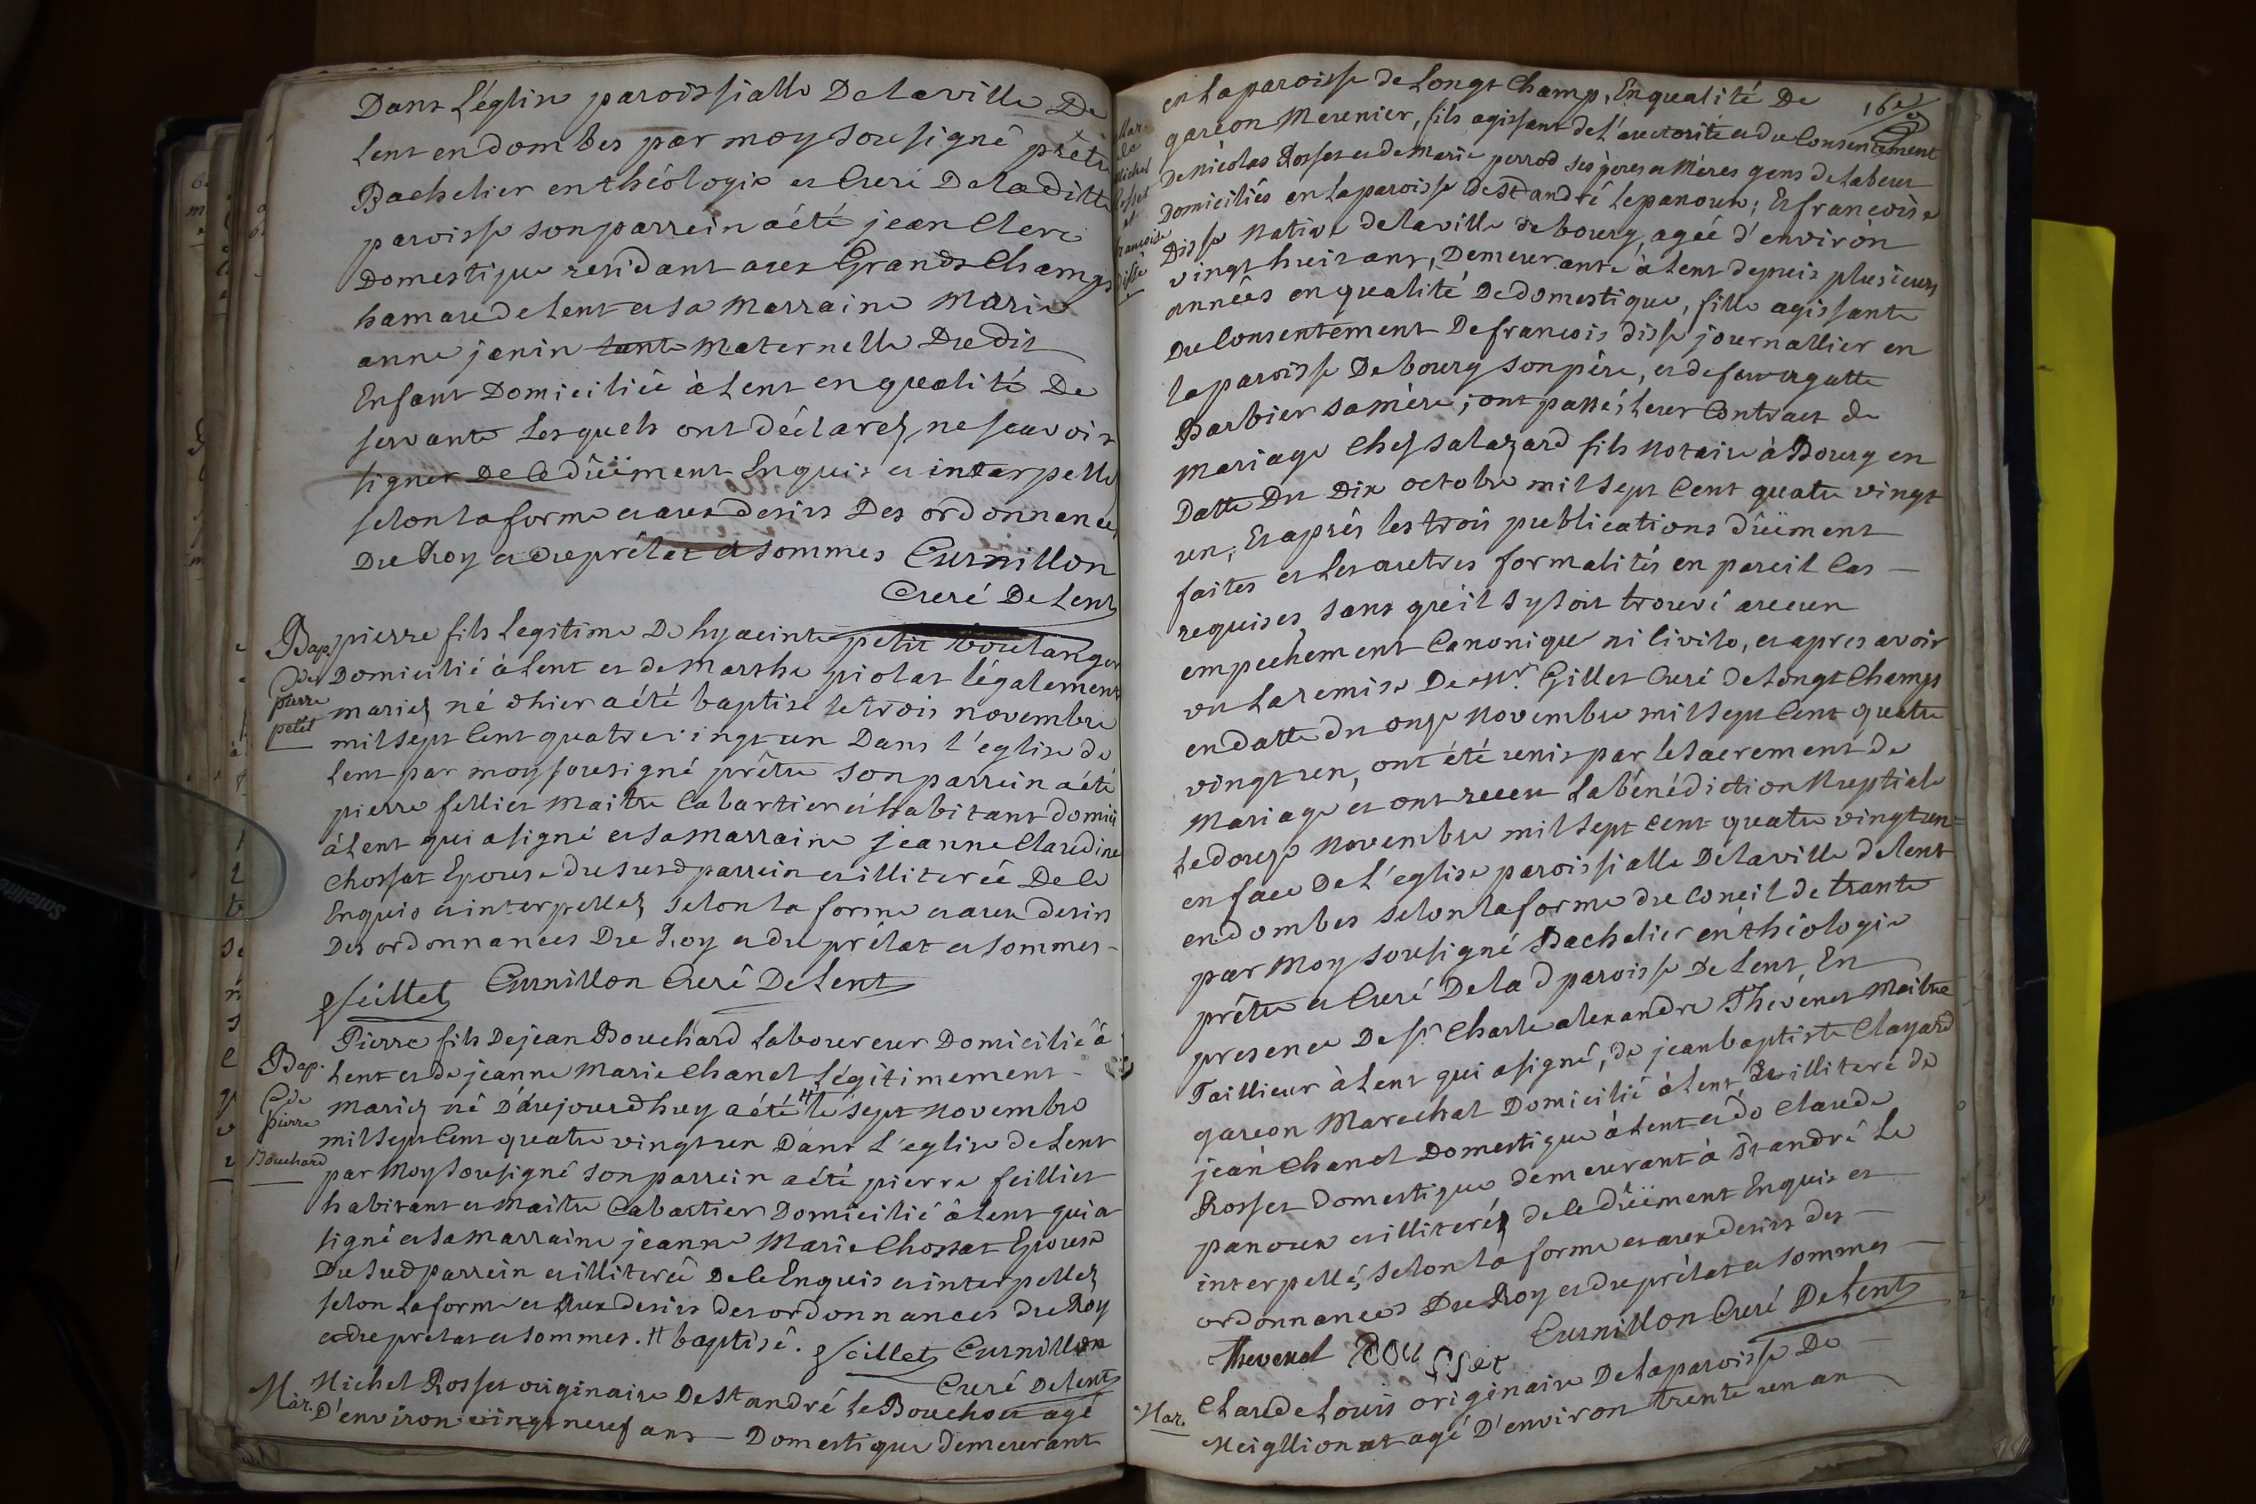 Dans L'église paroissialle De la ville De
Lent en dombes par moy sousigné prêtre
Bachelier en théologie et Curé De la ditte
paroisse son parrein a été jean Clerc
Domestique residant aux Grands Champs
hamau de Lent et sa Marraine Marie
anne janin tante Maternelle Du dit
Enfant Domiciliée à Lent en qualité De
servante Lesquels ont déclarez ne scavoir
signer De Ce dûëment Enquis et interpellé
selon la forme et aux desirs Des ordonnances
Du Roy et du prélat et sommes Curnillon
Curé De Lent
Bap.
de
pierre
petit
pierre fils Legitime De hyacinte petit boulanger
Domicilié à Lent et de Marthe piolat légalement
mariez né d'hier a été baptisé le trois novembre
mil sept Cent quatre vingt un Dans l'eglise de
Lent par moy sousigné prêtre son parrein a été
pierre feillet Maitre Cabartier et habitant domicil
à Lent qui a signé et sa Marraine jeanne Claudine
Chossat Epouse du susd parrein et illiterée De Ce
Enquis et interpellez selon la forme et aux desirs
Des ordonnances Du Roy et du prélat et sommes
pfeillet Curnillon Curé De Lent
Bap.
de
pierre
Bouchard
Pierre fils De jean Bouchard Laboureur Domicilié à
Lent et de jeanne Marie Chanel Légitimement
Mariez né D'aujourd'huy a été # le sept Novembre
mil sept Cent quatre vingt un Dans L'eglise de Lent
par Moy sousigné son parrein a été pierre feilliet
habitant et Maitre Cabartier Domicilié à Lent qui a
signé et sa Marraine jeanne Marie Chossat Epouse
Du sud parrein et illiterée De Ce Enquis et interpellez
selon la forme et Aux desirs des ordonnances du Roy
et du prélat et sommes. # baptisé. pfeillet Curnillon
Curé De Lent
Mar.
Michel Rosset originaire De St andré Le Bouchou agé
D'environ vingt neuf ans — Domestique demeurant
16e
en La paroisse de Longt Champ, En qualité De
garçon Meunier, fils agissant de L'auctorité et du Consentement
De nicolas Rosset et de Marie perrod ses pères et Mères gens de Labeur
Domiciliés en La paroisse de St andré Le panoux; Et françoise
Mar.
de
Michel
Rosset
et
françoise
disse
Disse Native de la ville de bourg, agée d'environ
vingt huit ans, Demeurante à Lent depuis plusieurs
années en qualité De domestique, fille agissante
Du Consentement De francois disse journallier en
la paroisse De bourg son père, et de
Barbier sa mère; ont passés Leur Contract de
Mariage Chez salazard fils Notaire à Bourg en
Datte Du Dix octobre mil sept Cent quatre vingt
un; Et après les trois publications dûëment
faites et Les autres formalités en pareil Cas —
requises sans qu'il s'y soit trouvé aucun
empechement Canonique ni Civile, et apres avoir
vu La remise De Mr. Gillet Curé de Longt Champs
en datte du onze Novembre mil sept Cent quatre
vingt un, ont été unis par le sacrement de
Mariage et ont receu La bénédiction Nuptiale
Le douze Novembre mil sept Cent quatre vingt un
en face De L'eglise paroissialle De la ville de Lent
en dombes selon la forme du Concil de trante
par Moy sousigné Bachelier en théologie
prêtre et Curé De la d paroisse De Lent, En
presence De sr. Charle alexandre Thévenet Maitre
Taillieur à Lent qui a signé, de jean baptiste Clayard
garcon Marechal Domicilié à Lent et illiteré de
jean Chanel Domestique à Lent et de Claude
Rosset Domestique demeurant à St andré Le
panoux et illiteréz de Ce dûëment Enquis et
interpellé; selon la forme et aux desirs des —
ordonnances Du Roy et du prélat et sommes —
Thevenet Rousset Curnillon Curé De Lent
Mar.
Claude Louis originaire De la paroisse De —
Neigllion et agé D'environ trente un an